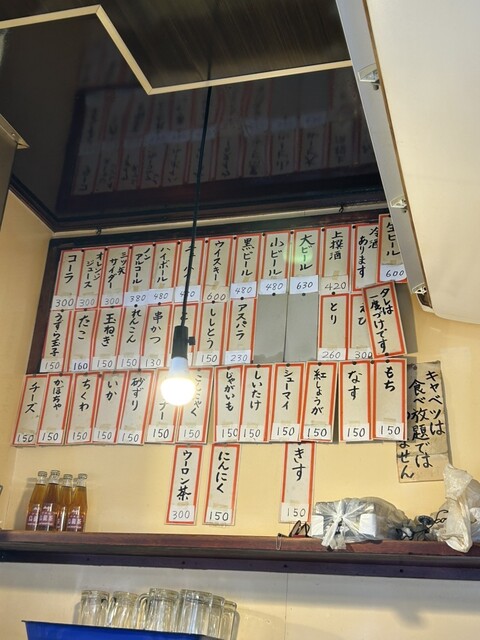 生ビール 600
冷酒あります
上撰酒 420
大ビール 630
小ビール 480
黒ビール 480
ウイスキー 600
ハイボール 480
ノンアルコール 380
三ツ矢サイダー 300
オレンジジュース 300
コーラ 300
タレは一度づけです
300
とり 260
アスパラ 230
ししとう 150
串かつ 130
れんこん 150
玉ねぎ 150
たこ 160
うずら玉子 150
もち 150
なす 150
紅しょうが 150
シューマイ 150
しいたけ 150
じゃがいも 150
150
150
砂ずり 150
いか 150
ちくわ 150
かぼちゃ 150
チーズ 150
キャベツは
食べ放題では
ません
きす 150
にんにく 150
ウーロン茶 300